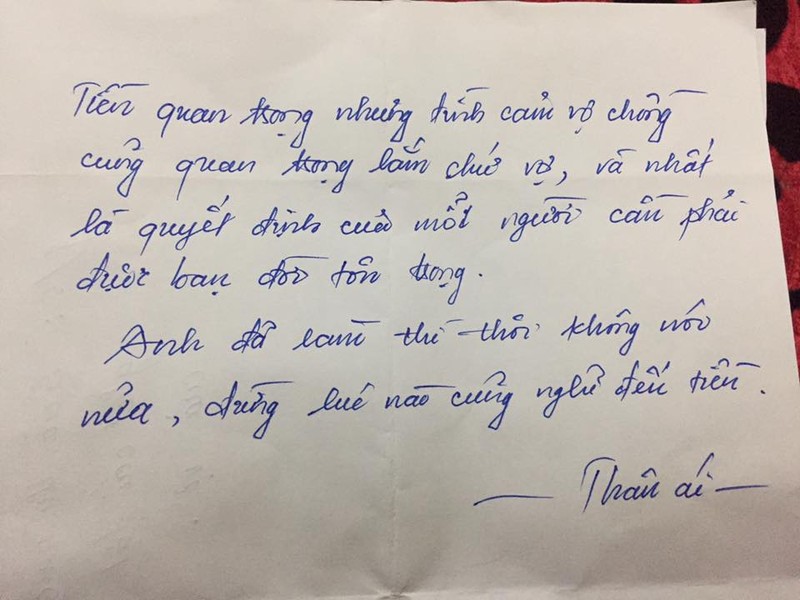 Tiền quan trọng nhưng tình cảm vợ chồng
cũng quan trọng lắm chứ vợ, và nhất
là quyết định của mỗi người cần phải
được bạn đời tôn trọng.
Anh đã làm thì thôi không nói
nữa, đừng lúc nào cũng nghĩ đến tiền.
— Thân ái —